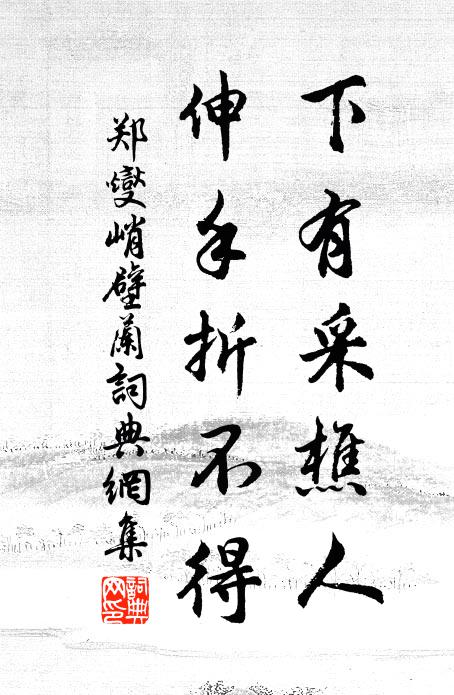 下有采樵人
伸手折不得
郑燮峭壁蘭詞典網集
詞典
网印